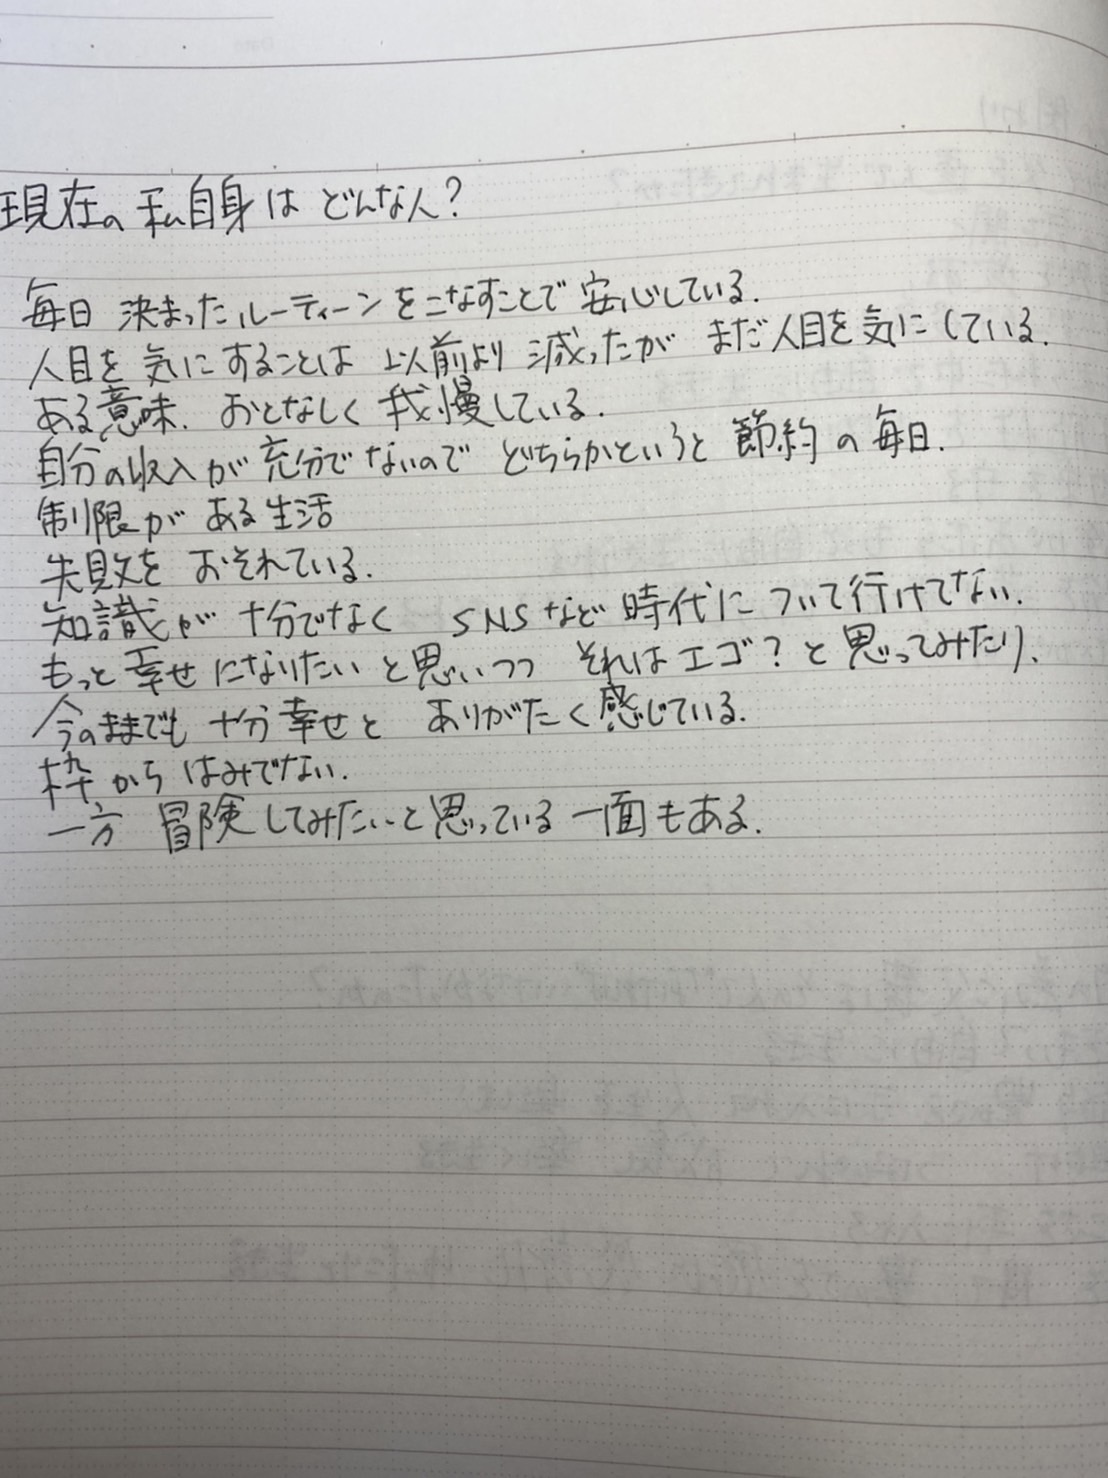 現在の私自身はどんな人?
毎日 決まったルーティーンをこなすことで安心している.
人目を気にすることは以前より減ったがまだ人目を気にしている.
ある意味、おとなしく我慢している.
自分の収入が充分でないのでどちらかというと節約の毎日.
制限がある生活
失敗をおそれている.
知識が十分でなく SNSなど時代について行けてない.
もっと幸せになりたいと思いつつ それはエゴ?と思ってみたり、
今のままでも十分幸せと ありがたく感じている.
枠からはみでない.
一方 冒険してみたいと思っている一面もある.